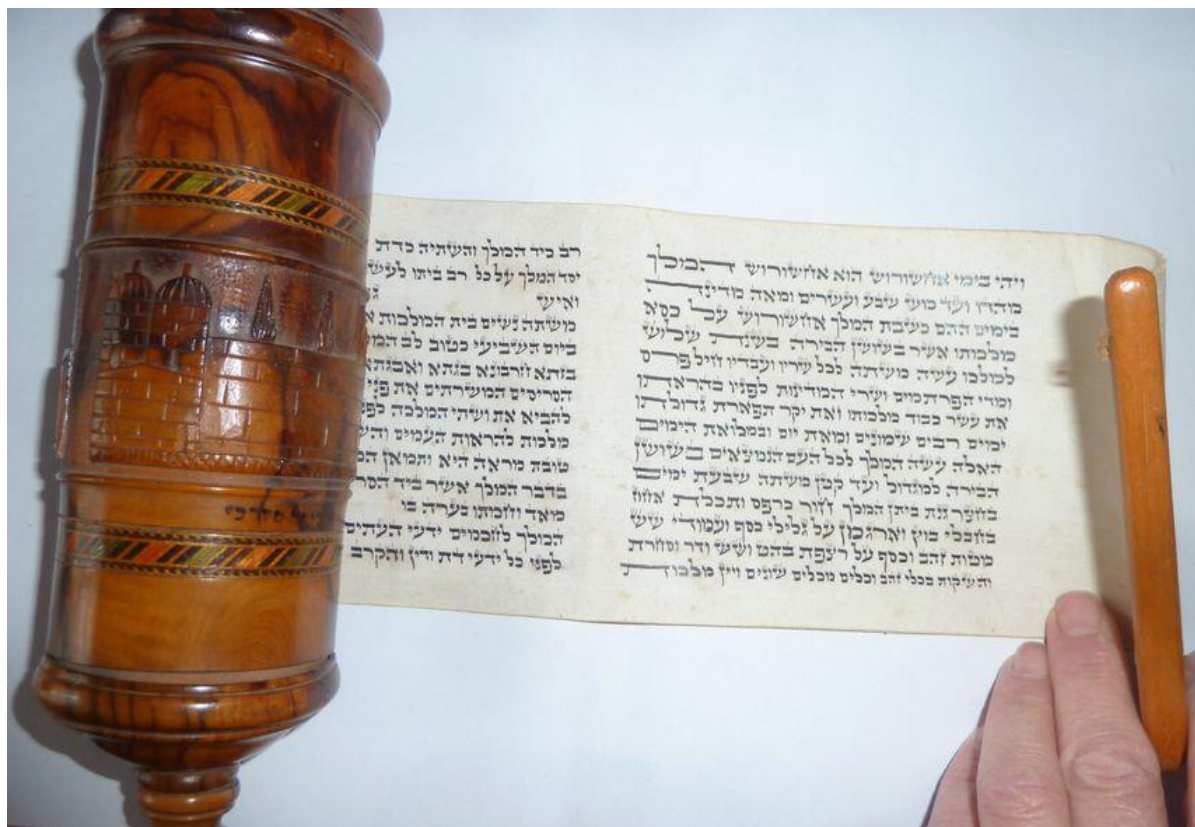 ויהי בימי אחשורוש הוא אחשורוש המלך
מהדו ועד כוש שבע ועשרים ומאה מדינה
בימים ההם כשבת המלך אחשורוש על כסא
מלכותו אשר בשושן הבירה בשנת שלוש
למלכו עשה משתה לכל שריו ועבדיו חיל פרס
ומדי הפרתמים ושרי המדינות לפניו בהראתו
את עשר כבוד מלכותו ואת יקר תפארת גדולתו
ימים רבים שמונים ומאת יום ובמלואת הימים
האלה עשה המלך לכל העם הנמצאים בשושן
הבירה למגדול ועד קטן משתה שבעת ימים
בחצר גנת ביתן המלך חור כרפס ותכלת אחוז
בחבלי בוץ וארגמן על גלילי כסף ועמודי שש
מטות זהב וכסף על רצפת בהט ושש ודר וסחרת
והשקות בכלי זהב וכלים מכלים שונים ויין מלכות
רב כיד המלך והשתיה כדת
יסד המלך על כל רב ביתו
ואיש
משתה נשים בית המלכות
ביום השביעי כטוב לב
בזתא חרבונא בגתא ואבגתא
הסריסים המשרתים את פני
להביא את ושתי המלכה
מלכות להראות העמים
טובת מראה היא ותמאן
בדבר המלך אשר ביד
מאד וחמתו בערה בו
המלך לחכמים ידעי העתים
לפני כל ידעי דת ודין והקרב